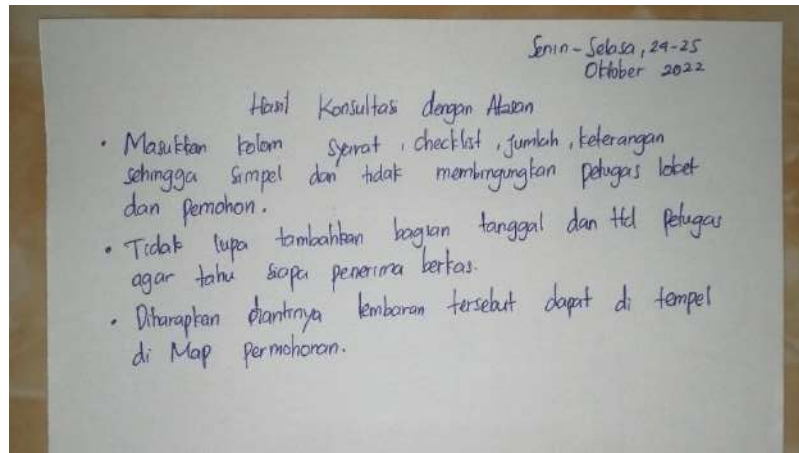 Senin - Selasa, 24-25
Oktober 2022
Hasil Konsultasi dengan Atasan
• Masukkan kolom syarat, checklist, jumlah, keterangan
sehingga simpel dan tidak membingungkan petugas loket
dan pemohon.
• Tidak lupa tambahkan bagian tanggal dan ttd petugas
agar tahu siapa penerima berkas.
• Diharapkan diantinya lembaran tersebut dapat di tempel
di Map permohonan.